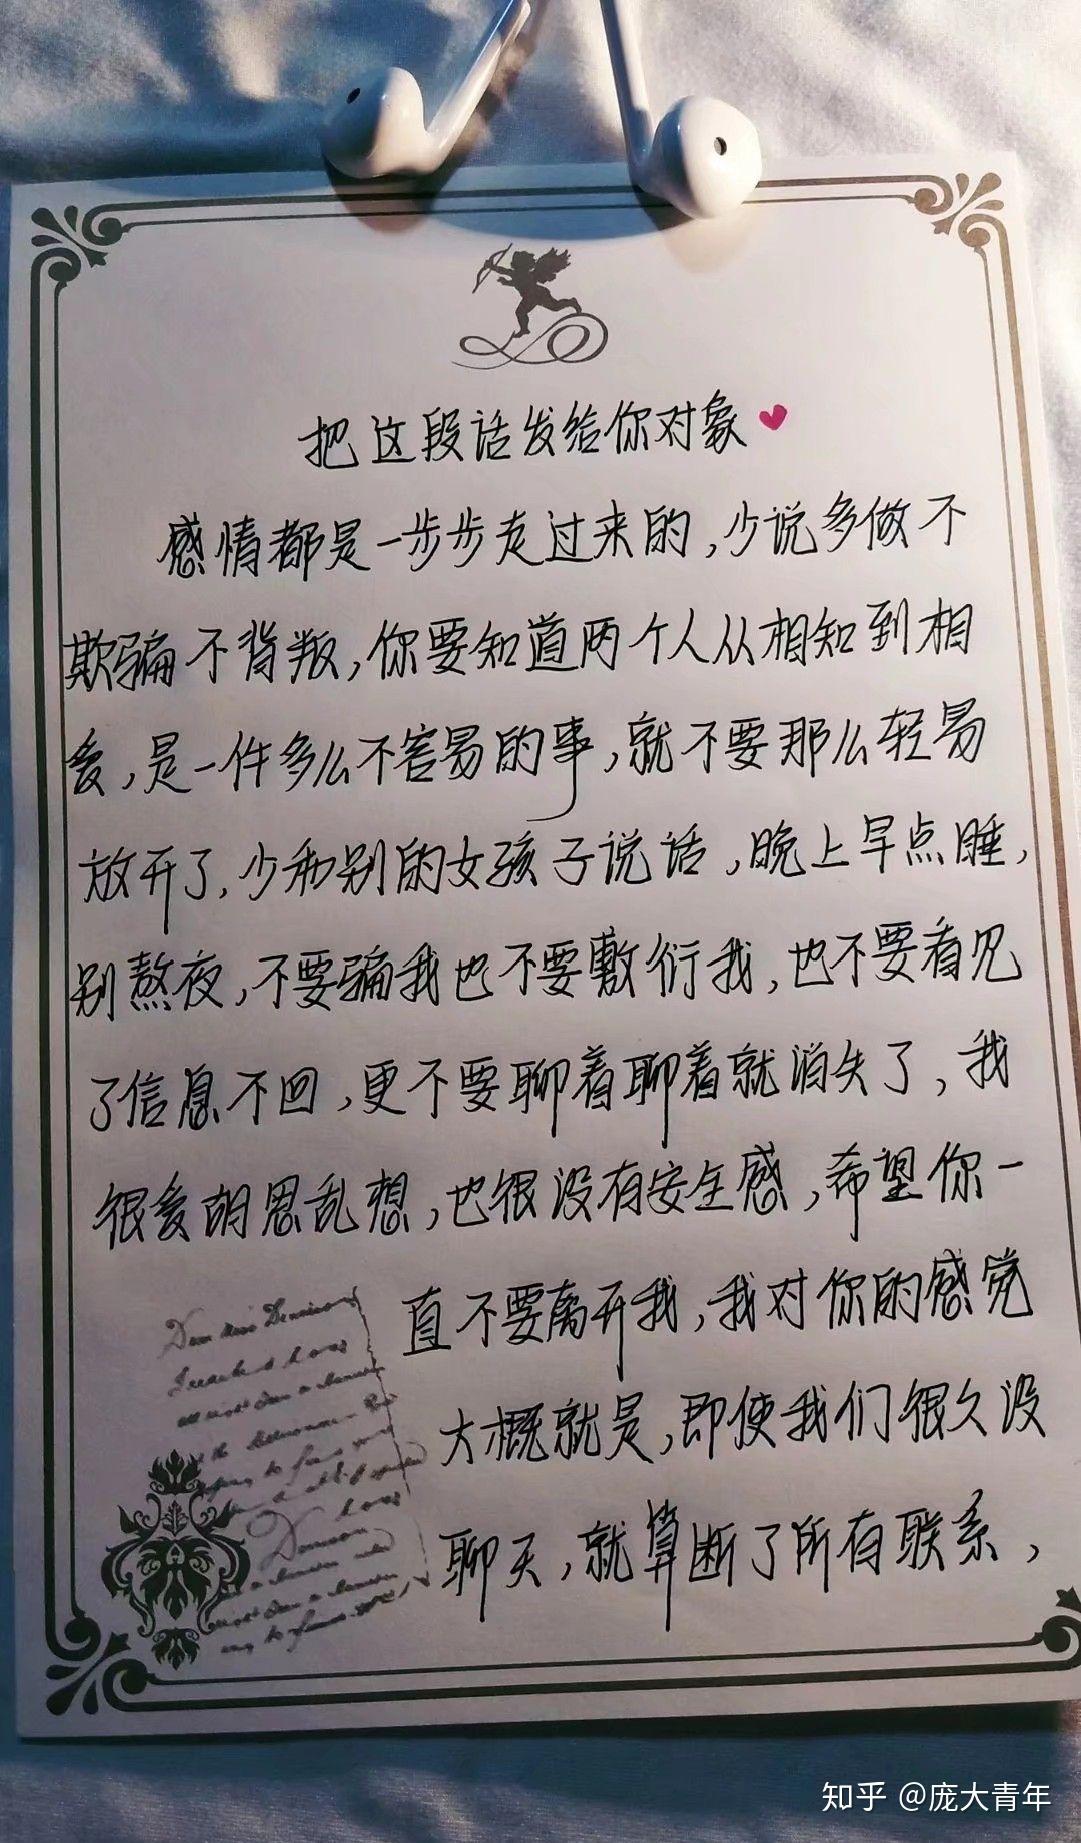 把这段话发给你对象
感情都是一步步走过来的,少说多做不
欺骗不背叛,你要知道两个人从相知到相
爱,是一件多么不容易的事,就不要那么轻易
放开了,少和别的女孩子说话,晚上早点睡,
别熬夜,不要骗我也不要敷衍我,也不要看见
了信息不回,更不要聊着聊着就消失了,我
很爱胡思乱想,也很没有安全感,希望你一
直不要离开我,我对你的感觉
大概就是,即使我们很久没
聊天,就算断了所有联系,
知乎 @庞大青年